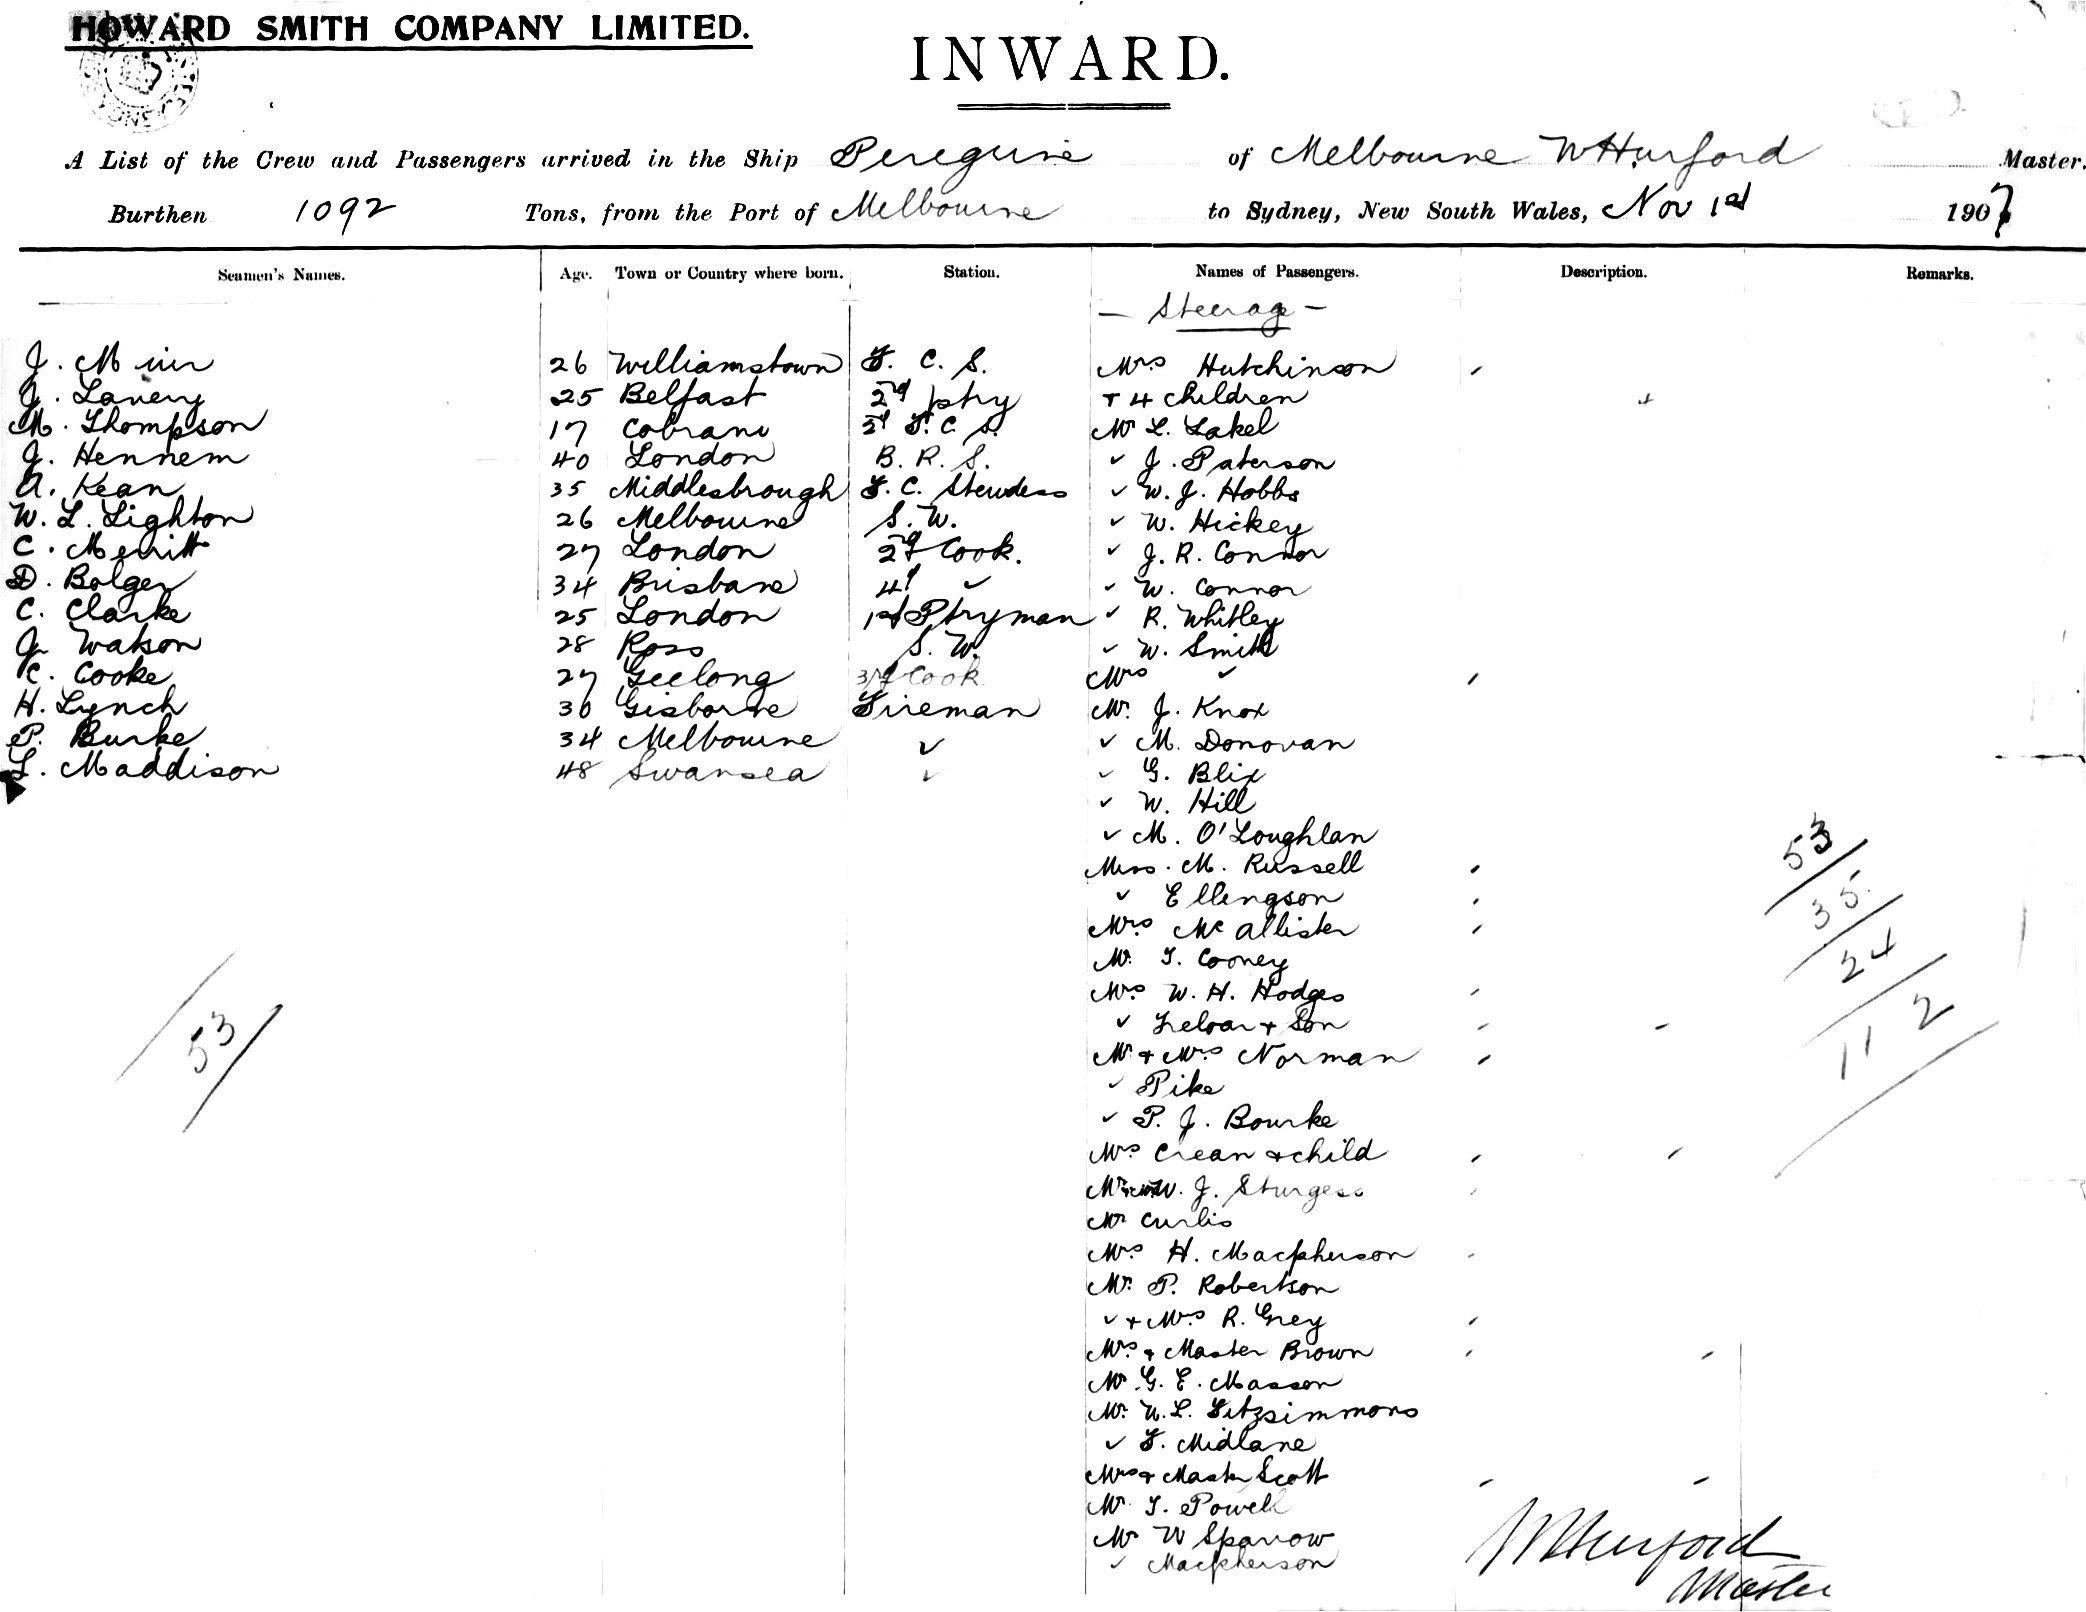 HOWARD SMITH COMPANY LIMITED.
INWARD.
A List of the Crew and Passengers arrived in the Ship Peregrine of Melbourne W Hurford Master.
Burthen 1092 Tons, from the Port of Melbourne to Sydney, New South Wales, Nov 1st 1907
Seamen's Names. Age. Town or Country where born. Station. Names of Passengers. Description. Remarks.
- Steerage -
J. Muir 26 Williamstown F. C. S. Mrs Hutchinson
J. Lavery 25 Belfast 2nd ptry + 4 children
M. Thompson 17 Cobram 2d F. C. S. Mr L. Lakel
J. Hennem 40 London B. R. S. ✓ J. Paterson
A. Kean 35 Middlesbrough F. C. Stewdess ✓ W. J. Hobbs
W. L. Lighton 26 Melbourne S. W. ✓ W. Hickey
C. Merritt 27 London 2nd Cook. ✓ J. R. Connor
D. Bolger 34 Brisbane 4th ✓ ✓ W. Connor
C. Clarke 25 London 1st Ptryman ✓ R. Whitley
J Watson 28 Ross S. W. ✓ W. Smith
C. Cooke 27 Geelong 3rd Cook Mrs ✓
H. Lynch 30 Gisborne Fireman Mr. J. Knox
P. Burke 34 Melbourne ✓ ✓ M. Donovan
L. Maddison 48 Swansea ✓ ✓ G. Blix
✓ W. Hill
✓ M. O'Loughlan
Miss. M. Russell
✓ Ellengson
Mrs McAllister
Mr. T. Cooney
Mrs W. H. Hodges
✓ Treloar + Son
Mr + Mrs Norman
✓ Pike
✓ P. J. Bourke
Mrs Crean + child
W. J. Sturgess
Mr Curtis
Mrs H. Macpherson
Mr. P. Robertson
✓ + Mrs R. Grey
Mrs + Master Brown
Mr. G. E. Masson
Mr. N. L. Fitzsimmons
✓ F. Midlane
Mrs + Master Scott
Mr T. Powell
Mr W Sparrow
✓ Macpherson
53
53
35.
24
112
W Hurford
Master